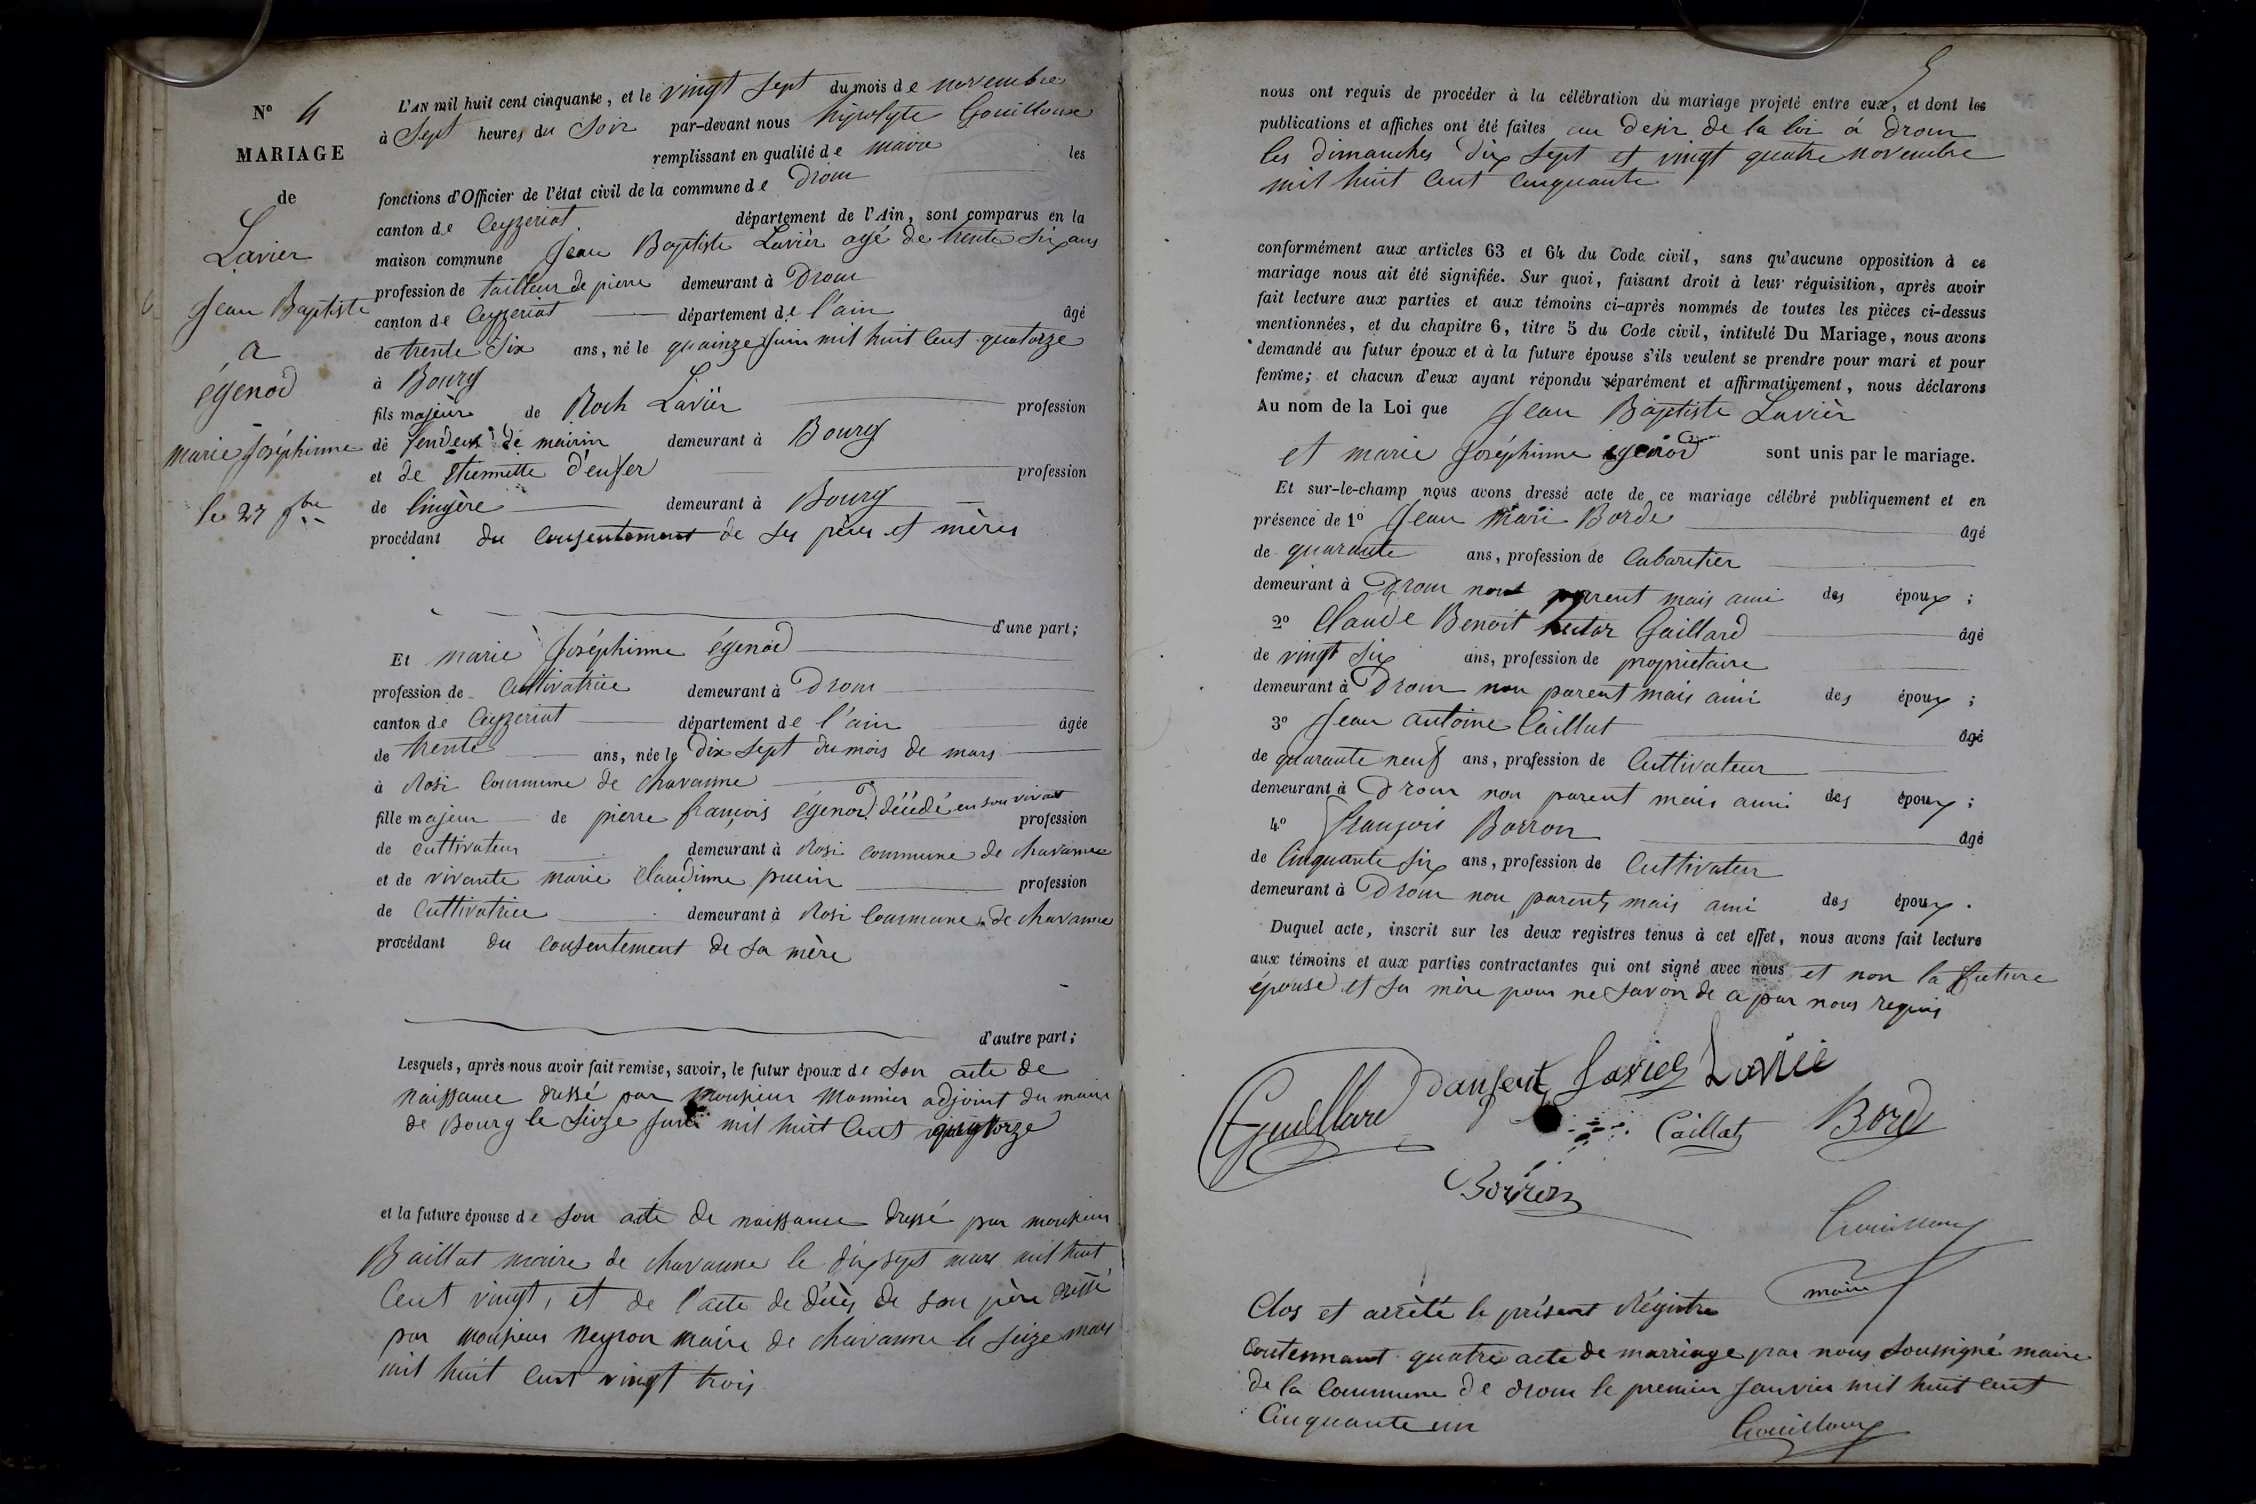 N° 4
MARIAGE
de
Lavier
Jean Baptiste
a
égenod
marie Joséphinne
le 27 9bre
L'AN mil huit cent cinquante, et le vingt sept du mois de novembre
à Sept heures du Soir par-devant nous hipolyte Gouilloux
remplissant en qualité de maire les
fonctions d'Officier de l'état civil de la commune de Drom
canton de Ceyzeriat département de l'Ain, sont comparus en la
maison commune Jean Baptiste Lavier agé de trente Six ans
profession de tailleur de pierre demeurant à Drom
canton de Ceyzeriat département de l'ain âgé
de trente Six ans, né le quainze Juin mil huit Cent quatorze
à Bourg
fils majeur de Roch Lavier profession
de fendeur de mairin demeurant à Bourg
et de Etiennette d'enfer profession
de lingère demeurant à Bourg
procédant du Consentement de ses pères et mères
d'une part;
Et marie Joséphinne égenod
profession de Cultivatrice demeurant à Drom
canton de Ceyzeriat département de l'ain âgée
de trente ans, née le Dix Sept du mois de mars
à Rosi Commune de Chavanne
fille majeur de pierre françois égenod décédé en son vivant
profession
de Cultivateur demeurant à Rosi commune de chavanne
et de vivante marie Claudinne puin profession
de Cultivatrice demeurant à Rosi Commune de chavanne
procédant du consentement de sa mère
d'autre part;
Lesquels, après nous avoir fait remise, savoir, le futur époux de Son acte de
naissance dressé par Monsieur Monnier adjoint du maire
de Bourg le Seize Juin mil huit Cent quatorze
et la future épouse de Son acte de naissance dressé par monsieur
Baillat maire de chavanne le dix sept mars mil huit
Cent vingt, et de l'acte de décès de son père dressé
par monsieur neyron maire de chavanne le Seize mars
mil huit Cent vingt trois
5
nous ont requis de procéder à la célébration du mariage projeté entre eux, et dont les
publications et affiches ont été faites au desir de la loi à Drom
les dimanches dix Sept et vingt quatre novembre
mil huit Cent Cinquante
conformément aux articles 63 et 64 du Code civil, sans qu'aucune opposition à ce
mariage nous ait été signifiée. Sur quoi, faisant droit à leur réquisition, après avoir
fait lecture aux parties et aux témoins ci-après nommés de toutes les pièces ci-dessus
mentionnées, et du chapitre 6, titre 5 du Code civil, intitulé Du Mariage, nous avons
demandé au futur époux et à la future épouse s'ils veulent se prendre pour mari et pour
femme; et chacun d'eux ayant répondu séparément et affirmativement, nous déclarons
Au nom de la Loi que Jean Baptiste Lavier
et marie Joséphinne egenod sont unis par le mariage.
Et sur-le-champ nous avons dressé acte de ce mariage célébré publiquement et en
présence de 1° Jean Marie Borde âgé
de quarante ans, profession de Cabaretier
demeurant à Drom non parent mais ami des époux;
2° Claude Benoit hector Gaillard âgé
de vingt Six ans, profession de propriétaire
demeurant à Drom non parent mais ami des époux;
3° Jean antoine Caillat âgé
de quarante neuf ans, profession de Cultivateur
demeurant à Drom non parent mais ami des époux;
4° François Borron âgé
de Cinquante Six ans, profession de Cultivateur
demeurant à Drom non parents mais ami des époux.
Duquel acte, inscrit sur les deux registres tenus à cet effet, nous avons fait lecture
aux témoins et aux parties contractantes qui ont signé avec nous et non la future
épouse et sa mère pour ne Savoir de a par nous requis
Gaillard Danfert Lavier Lavié
Caillat Borde
Borron
Gouilloux
maire
Clos et arrêté le présent Régistre
Contennant quatre acte de marriage par nous Soussigné maire
de la Commune de Drom le premier Janvier mil huit cent
Cinquante un
Gouilloux